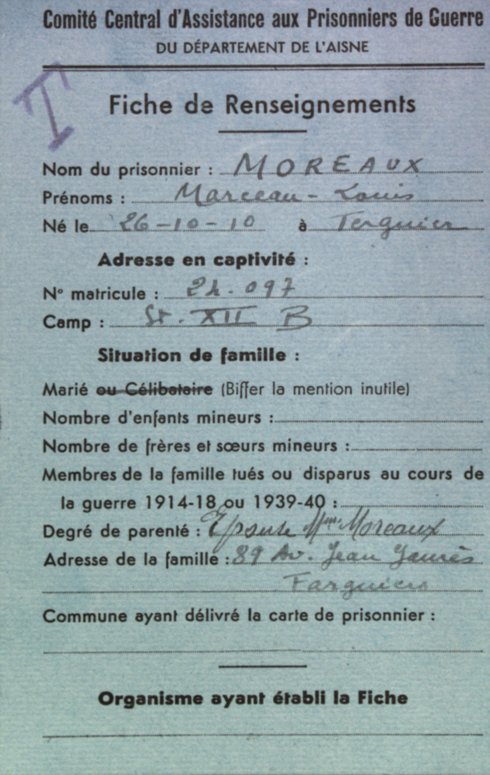 Comité Central d'Assistance aux Prisonniers de Guerre
DU DÉPARTEMENT DE L'AISNE
I
Fiche de Renseignements
Nom du prisonnier : MOREAUX
Prénoms : Marceau - Louis
Né le 26-10-10 à Tergnier
Adresse en captivité :
N° matricule : 24.097
Camp : St. XII B
Situation de famille :
Marié ou Célibataire (Biffer la mention inutile)
Nombre d'enfants mineurs :
Nombre de frères et sœurs mineurs :
Membres de la famille tués ou disparus au cours de
la guerre 1914-18 ou 1939-40 :
Degré de parenté : Epouse Mme Moreaux
Adresse de la famille : 89 Av. Jean Jaurès
Fargniers
Commune ayant délivré la carte de prisonnier :
Organisme ayant établi la Fiche